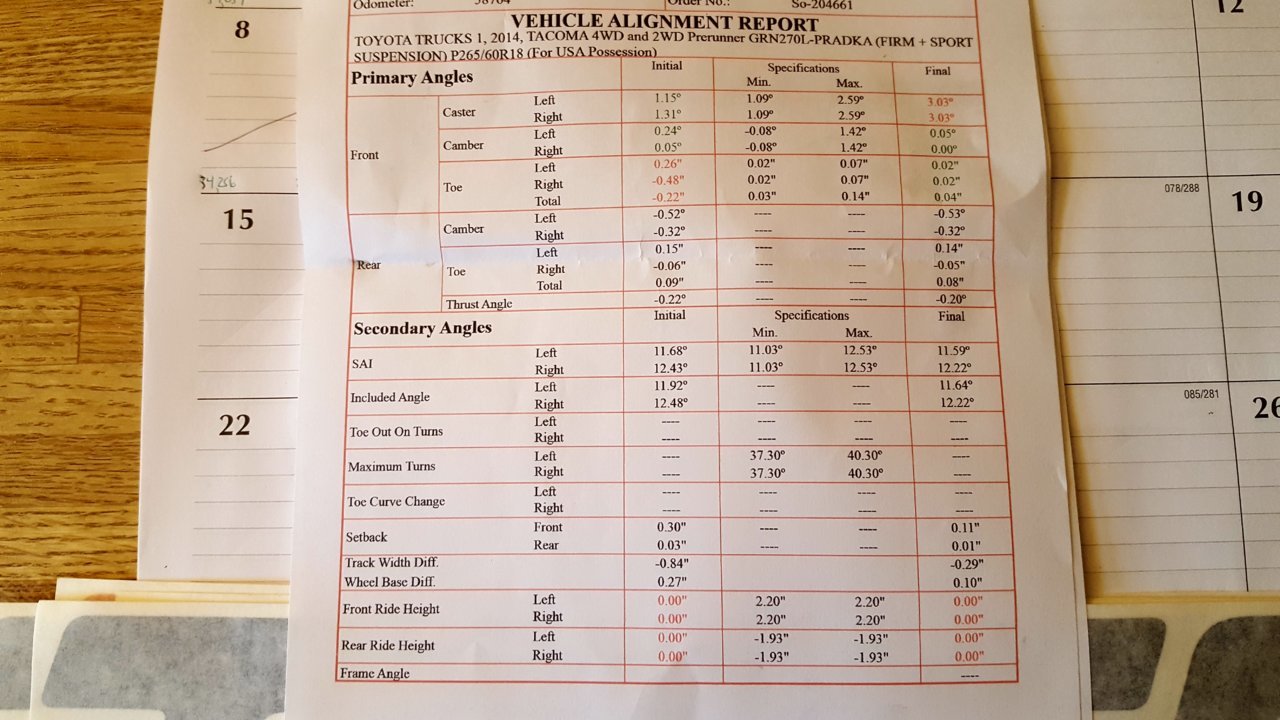 Odometer: 58704 Order No.: So-204661
VEHICLE ALIGNMENT REPORT
TOYOTA TRUCKS 1, 2014, TACOMA 4WD and 2WD Prerunner GRN270L-PRADKA (FIRM + SPORT
SUSPENSION) P265/60R18 (For USA Possession)
Primary Angles Initial Specifications Final
Min. Max.
Front Caster Left 1.15° 1.09° 2.59° 3.03°
Right 1.31° 1.09° 2.59° 3.03°
Camber Left 0.24° -0.08° 1.42° 0.05°
Right 0.05° -0.08° 1.42° 0.00°
Toe Left 0.26" 0.02" 0.07" 0.02"
Right -0.48" 0.02" 0.07" 0.02"
Total -0.22" 0.03" 0.14" 0.04"
Rear Camber Left -0.52° ---- ---- -0.53°
Right -0.32° ---- ---- -0.32°
Toe Left 0.15" ---- ---- 0.14"
Right -0.06" ---- ---- -0.05"
Total 0.09" ---- ---- 0.08"
Thrust Angle -0.22° ---- ---- -0.20°
Secondary Angles Initial Specifications Final
Min. Max.
SAI Left 11.68° 11.03° 12.53° 11.59°
Right 12.43° 11.03° 12.53° 12.22°
Included Angle Left 11.92° ---- ---- 11.64°
Right 12.48° ---- ---- 12.22°
Toe Out On Turns Left ---- ---- ---- ----
Right ---- ---- ---- ----
Maximum Turns Left ---- 37.30° 40.30° ----
Right ---- 37.30° 40.30° ----
Toe Curve Change Left ---- ---- ---- ----
Right ---- ---- ---- ----
Setback Front 0.30" ---- ---- 0.11"
Rear 0.03" ---- ---- 0.01"
Track Width Diff. -0.84" -0.29"
Wheel Base Diff. 0.27" 0.10"
Front Ride Height Left 0.00" 2.20" 2.20" 0.00"
Right 0.00" 2.20" 2.20" 0.00"
Rear Ride Height Left 0.00" -1.93" -1.93" 0.00"
Right 0.00" -1.93" -1.93" 0.00"
Frame Angle ----
8
15
22
12
078/288
19
085/281
26